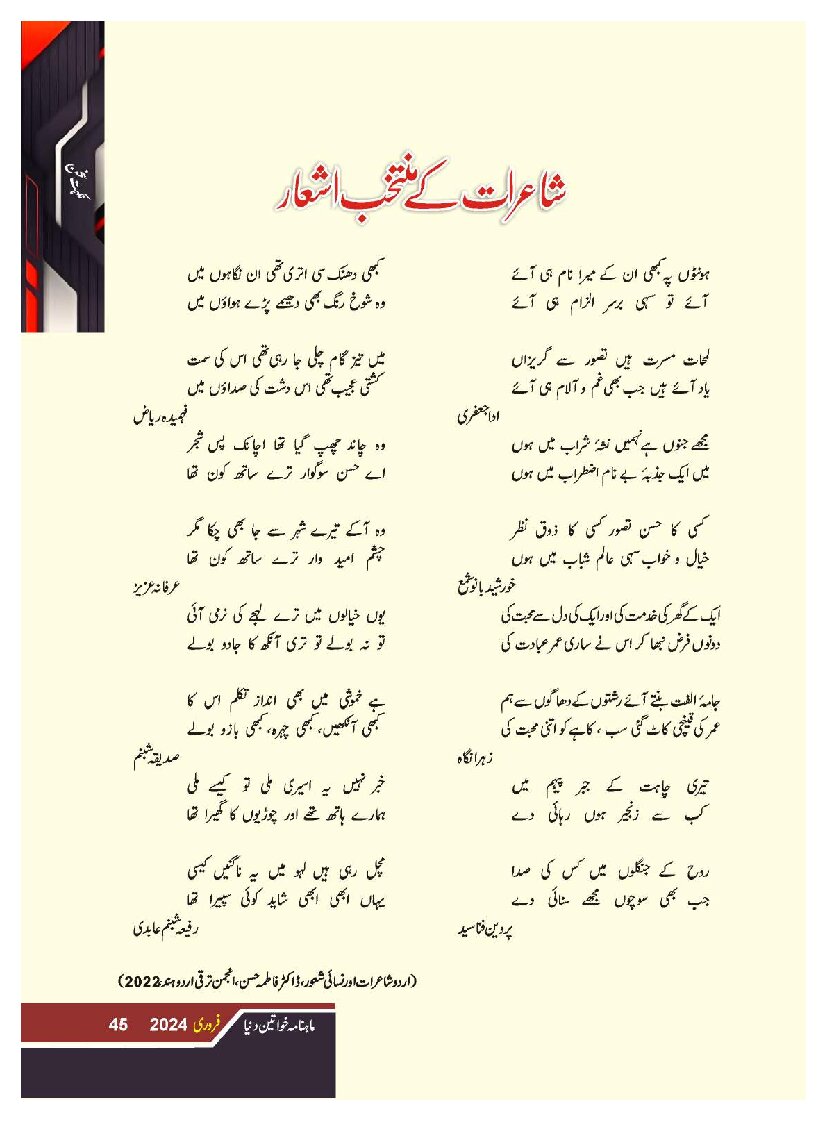 شاعرات کے منتخب اشعار
ہونٹوں پہ کبھی ان کے میرا نام ہی آئے
آئے تو سہی برسر الزام ہی آئے
لمحات مسرت ہیں تصور سے گریزاں
یاد آئے ہیں جب بھی غم و آلام ہی آئے
ادا جعفری
مجھے جنوں ہے نہمیں نشۂ شراب میں ہوں
میں ایک جذبۂ بے نام اضطراب میں ہوں
کسی کا حسن تصور کسی کا ذوق نظر
خیال و خواب سہی عالم شباب میں ہوں
خورشید بانو شمع
ایک کے گھر کی خدمت کی اور ایک کی دل سے محبت کی
دونوں فرض نبھا کر اس نے ساری عمر عبادت کی
جامۂ الفت بنتے آئے رشتوں کے دھاگوں سے ہم
عمر کی قینچی کاٹ گئی سب ، کاہے کو اتنی محبت کی
زہرا نگاہ
تیری چاہت کے جبر پیہم میں
کب سے زنجیر ہوں رہائی دے
روح کے جنگلوں میں کس کی صدا
جب بھی سوچوں مجھے سنائی دے
پروین فنا سید
کبھی دھنک سی اتری تھی ان نگاہوں میں
وہ شوخ رنگ بھی دھیمے پڑے ہواؤں میں
میں تیز گام چلی جا رہی تھی اس کی سمت
کشش عجیب تھی اس دشت کی صداؤں میں
فہمیدہ ریاض
وہ چاند چھپ گیا تھا اچانک پس شجر
اے حسن سوگوار ترے ساتھ کون تھا
وہ آکے تیرے شہر سے جا بھی چکا مگر
چشم امید وار ترے ساتھ کون تھا
عرفانہ عزیز
یوں خیالوں میں ترے لہجے کی نرمی آئی
تو نہ بولے تو تری آنکھ کا جادو بولے
ہے خموشی میں بھی انداز تکلم اس کا
کبھی آنکھیں، کبھی چہرہ، کبھی بازو بولے
صدیقہ شبنم
خبر نہیں یہ اسیری ملی تو کیسے ملی
ہمارے ہاتھ تھے اور چوڑیوں کا گھیرا تھا
مچل رہی ہیں لہو میں یہ ناگنیں کیسی
یہاں ابھی ابھی شاید کوئی سپیرا تھا
رفیعہ شبنم عابدی
(اردو شاعرات اور نسائی شعور، ڈاکٹر فاطمہ حسن، انجمن ترقی اردو ہند،2022)
ماہنامہ خواتین دنیا فروری 2024 45